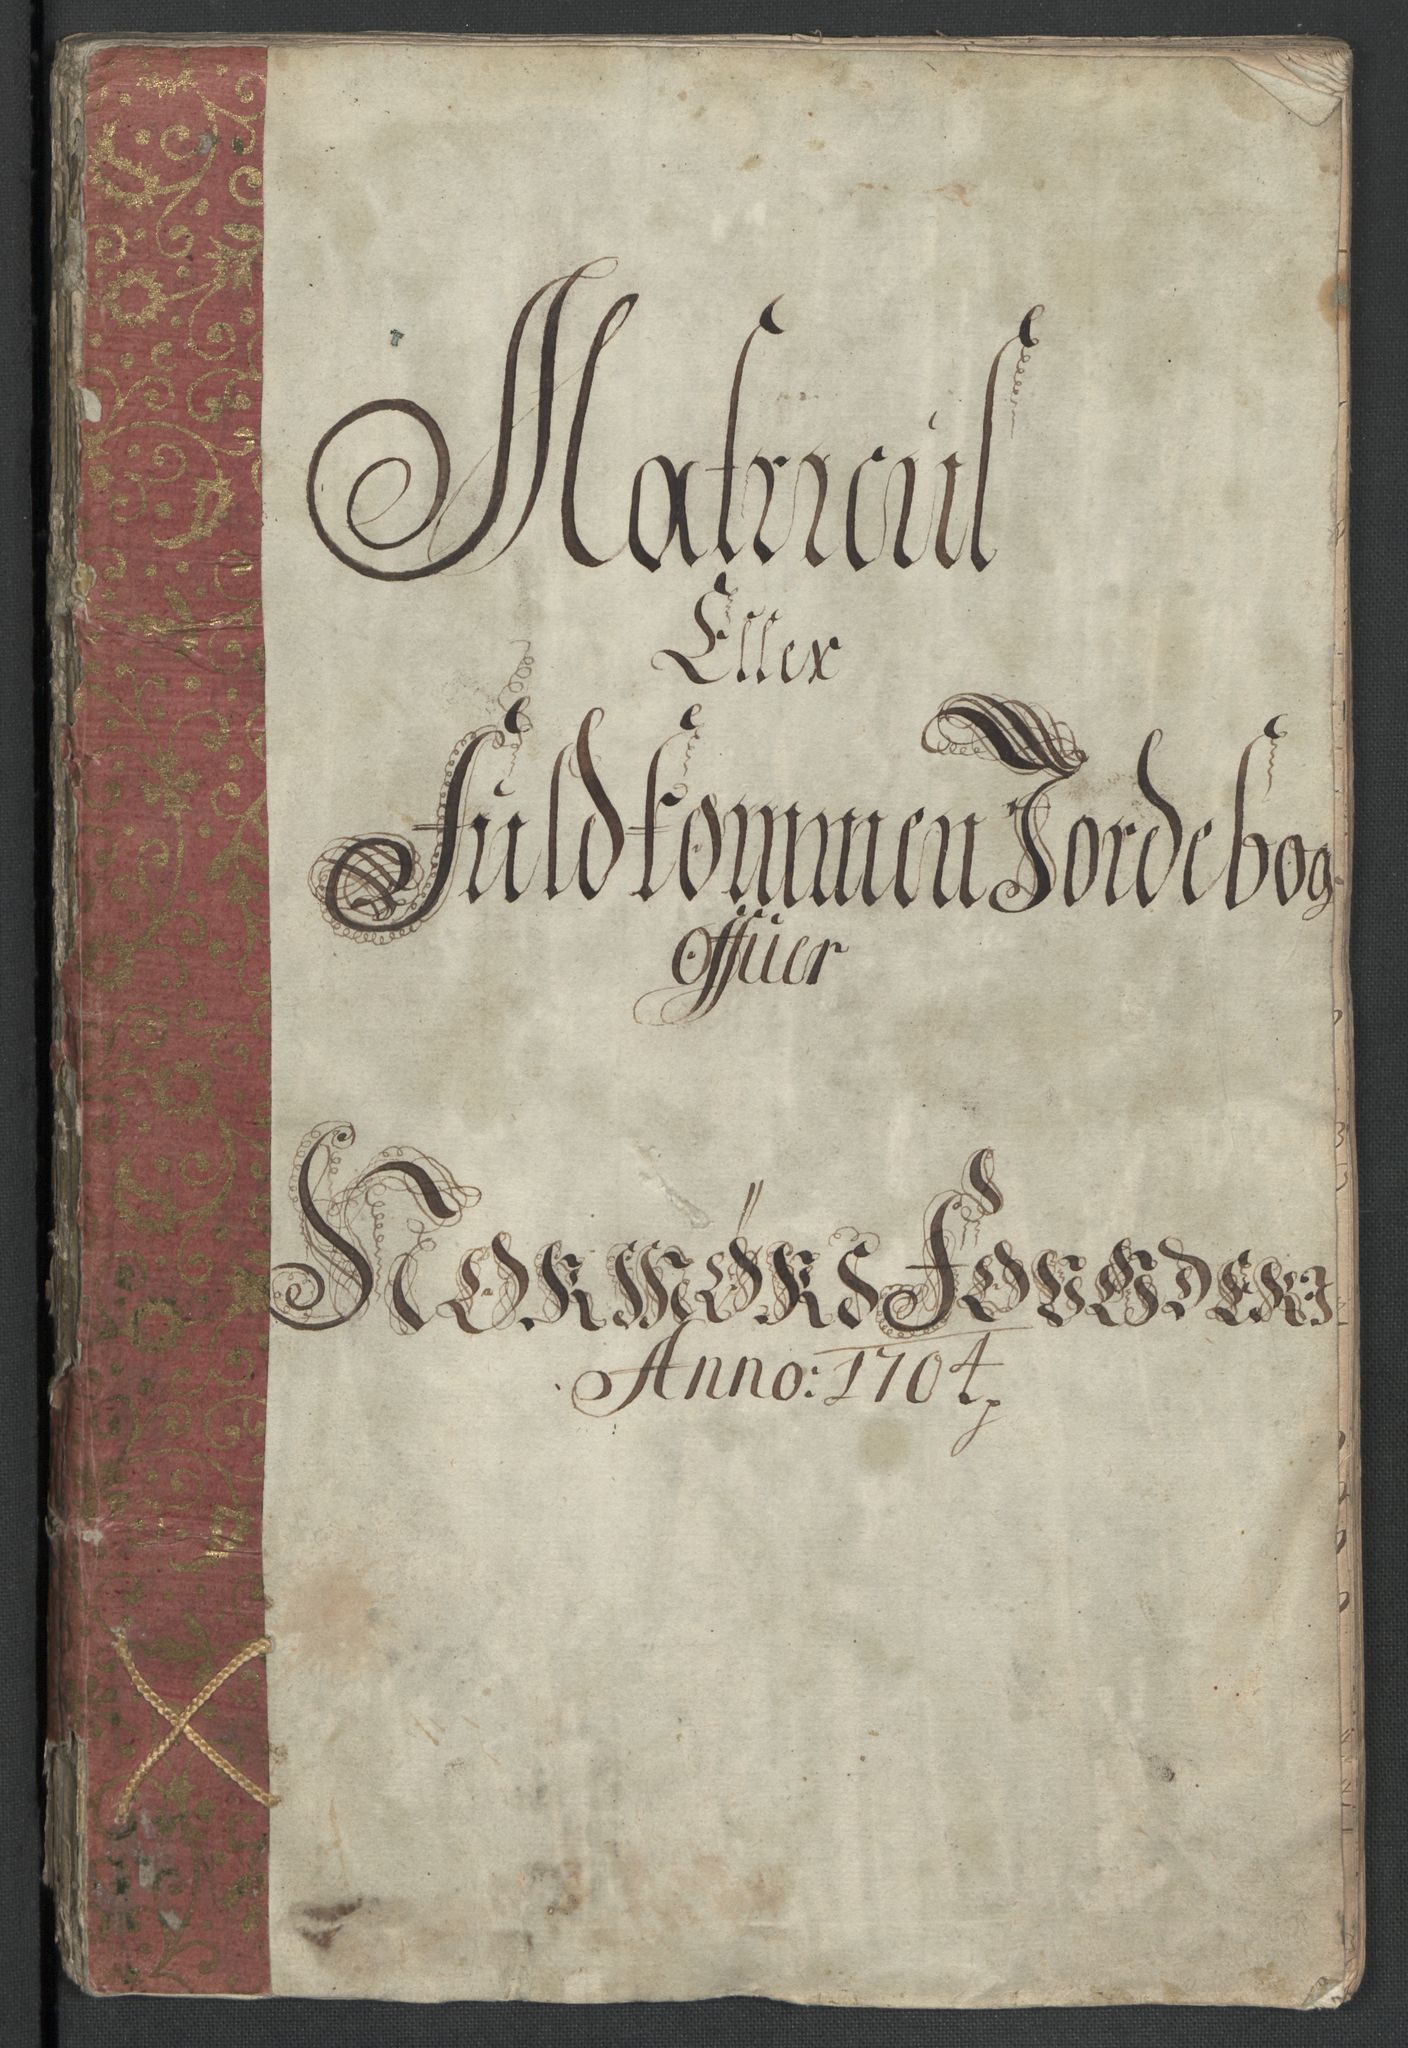 Matricul
Eller
Fuldkommen Jordebog
offuer
NORMÖRS FOUGDERI
Anno: 1704